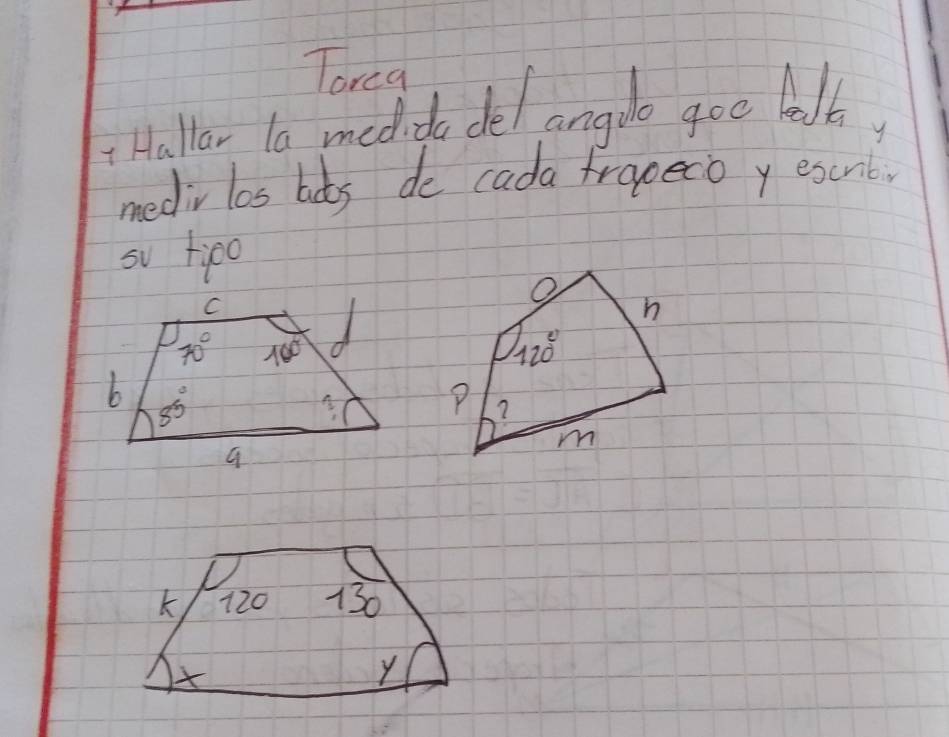 Torea
Hallar la medida del angulo qoe falta y
medir los lados de cada trapecio y escribir
su tipo
c
70° 100° d
b 85° ?
a
o
n
120°
p ?
m
k 120 130
x y